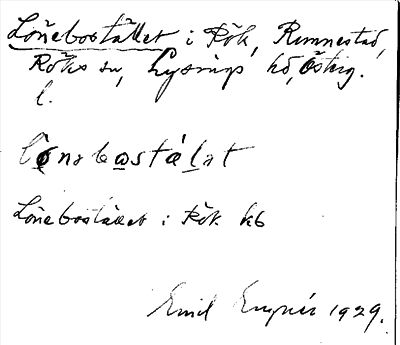 Lönebostället i Rök, Rennestad,
Röks sn, Lysings hd, Östergg.
l.
lönabostál.at
Lönebostället i Rök kb
Emil 1929.